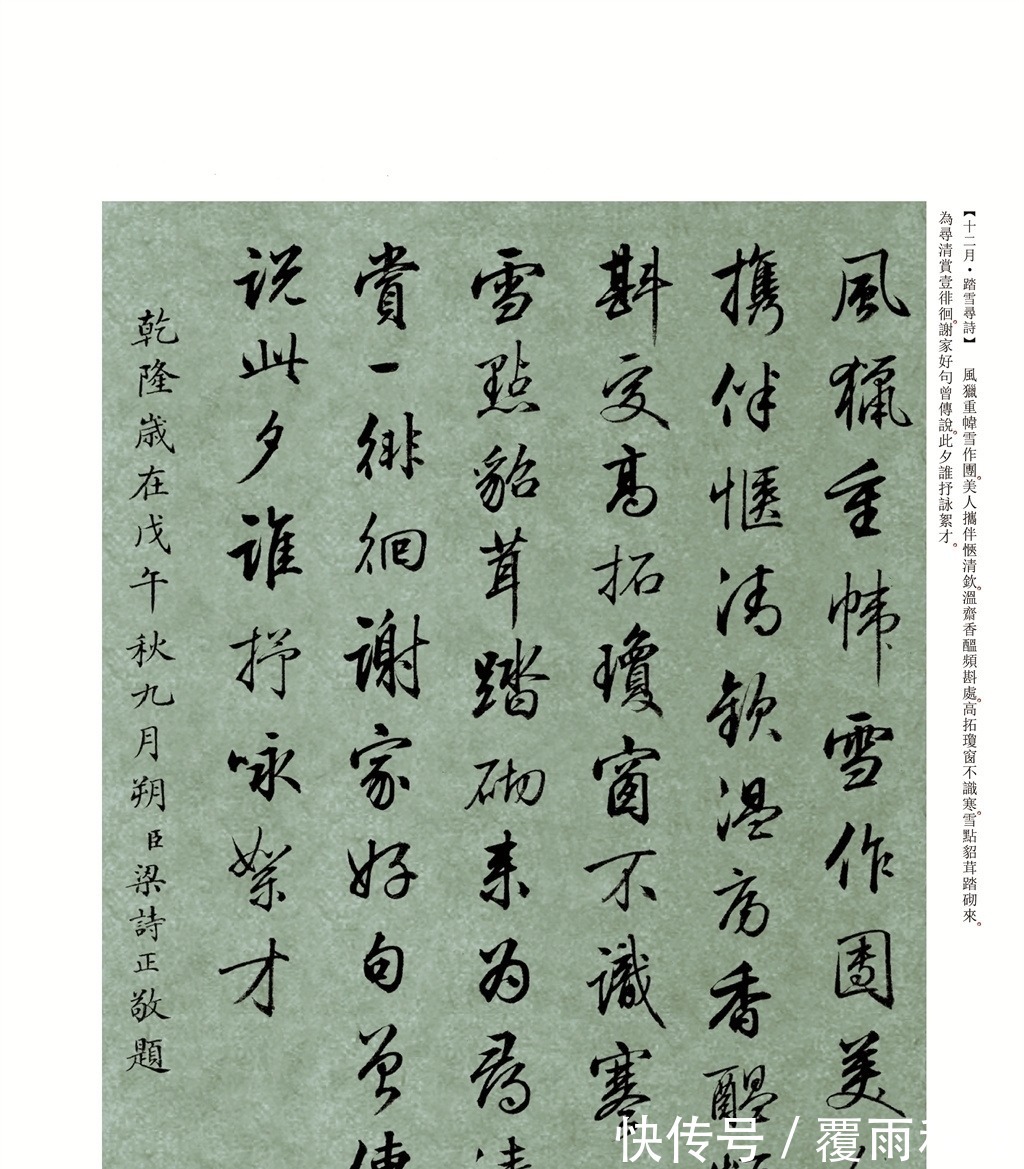 【十二月·踏雪尋詩】 風獵重幃雪作團。美人攜伴愜清欽。溫齋香醞頻斟處。高拓瓊窗不識寒。雪點貂茸踏砌來。
為尋清賞壹徘徊。謝家好句曾傳說。此夕誰抒詠絮才。
風獵重幃雪作團美
携伴愜清欽溫斋香醖
斟處高拓瓊窗不識寒
雪點貂茸踏砌来为尋清
賞一徘徊謝家好句曾傳
说此夕誰抒咏絮才
乾隆歲在戊午秋九月朔臣梁詩正敬題
快传号 / 覆雨